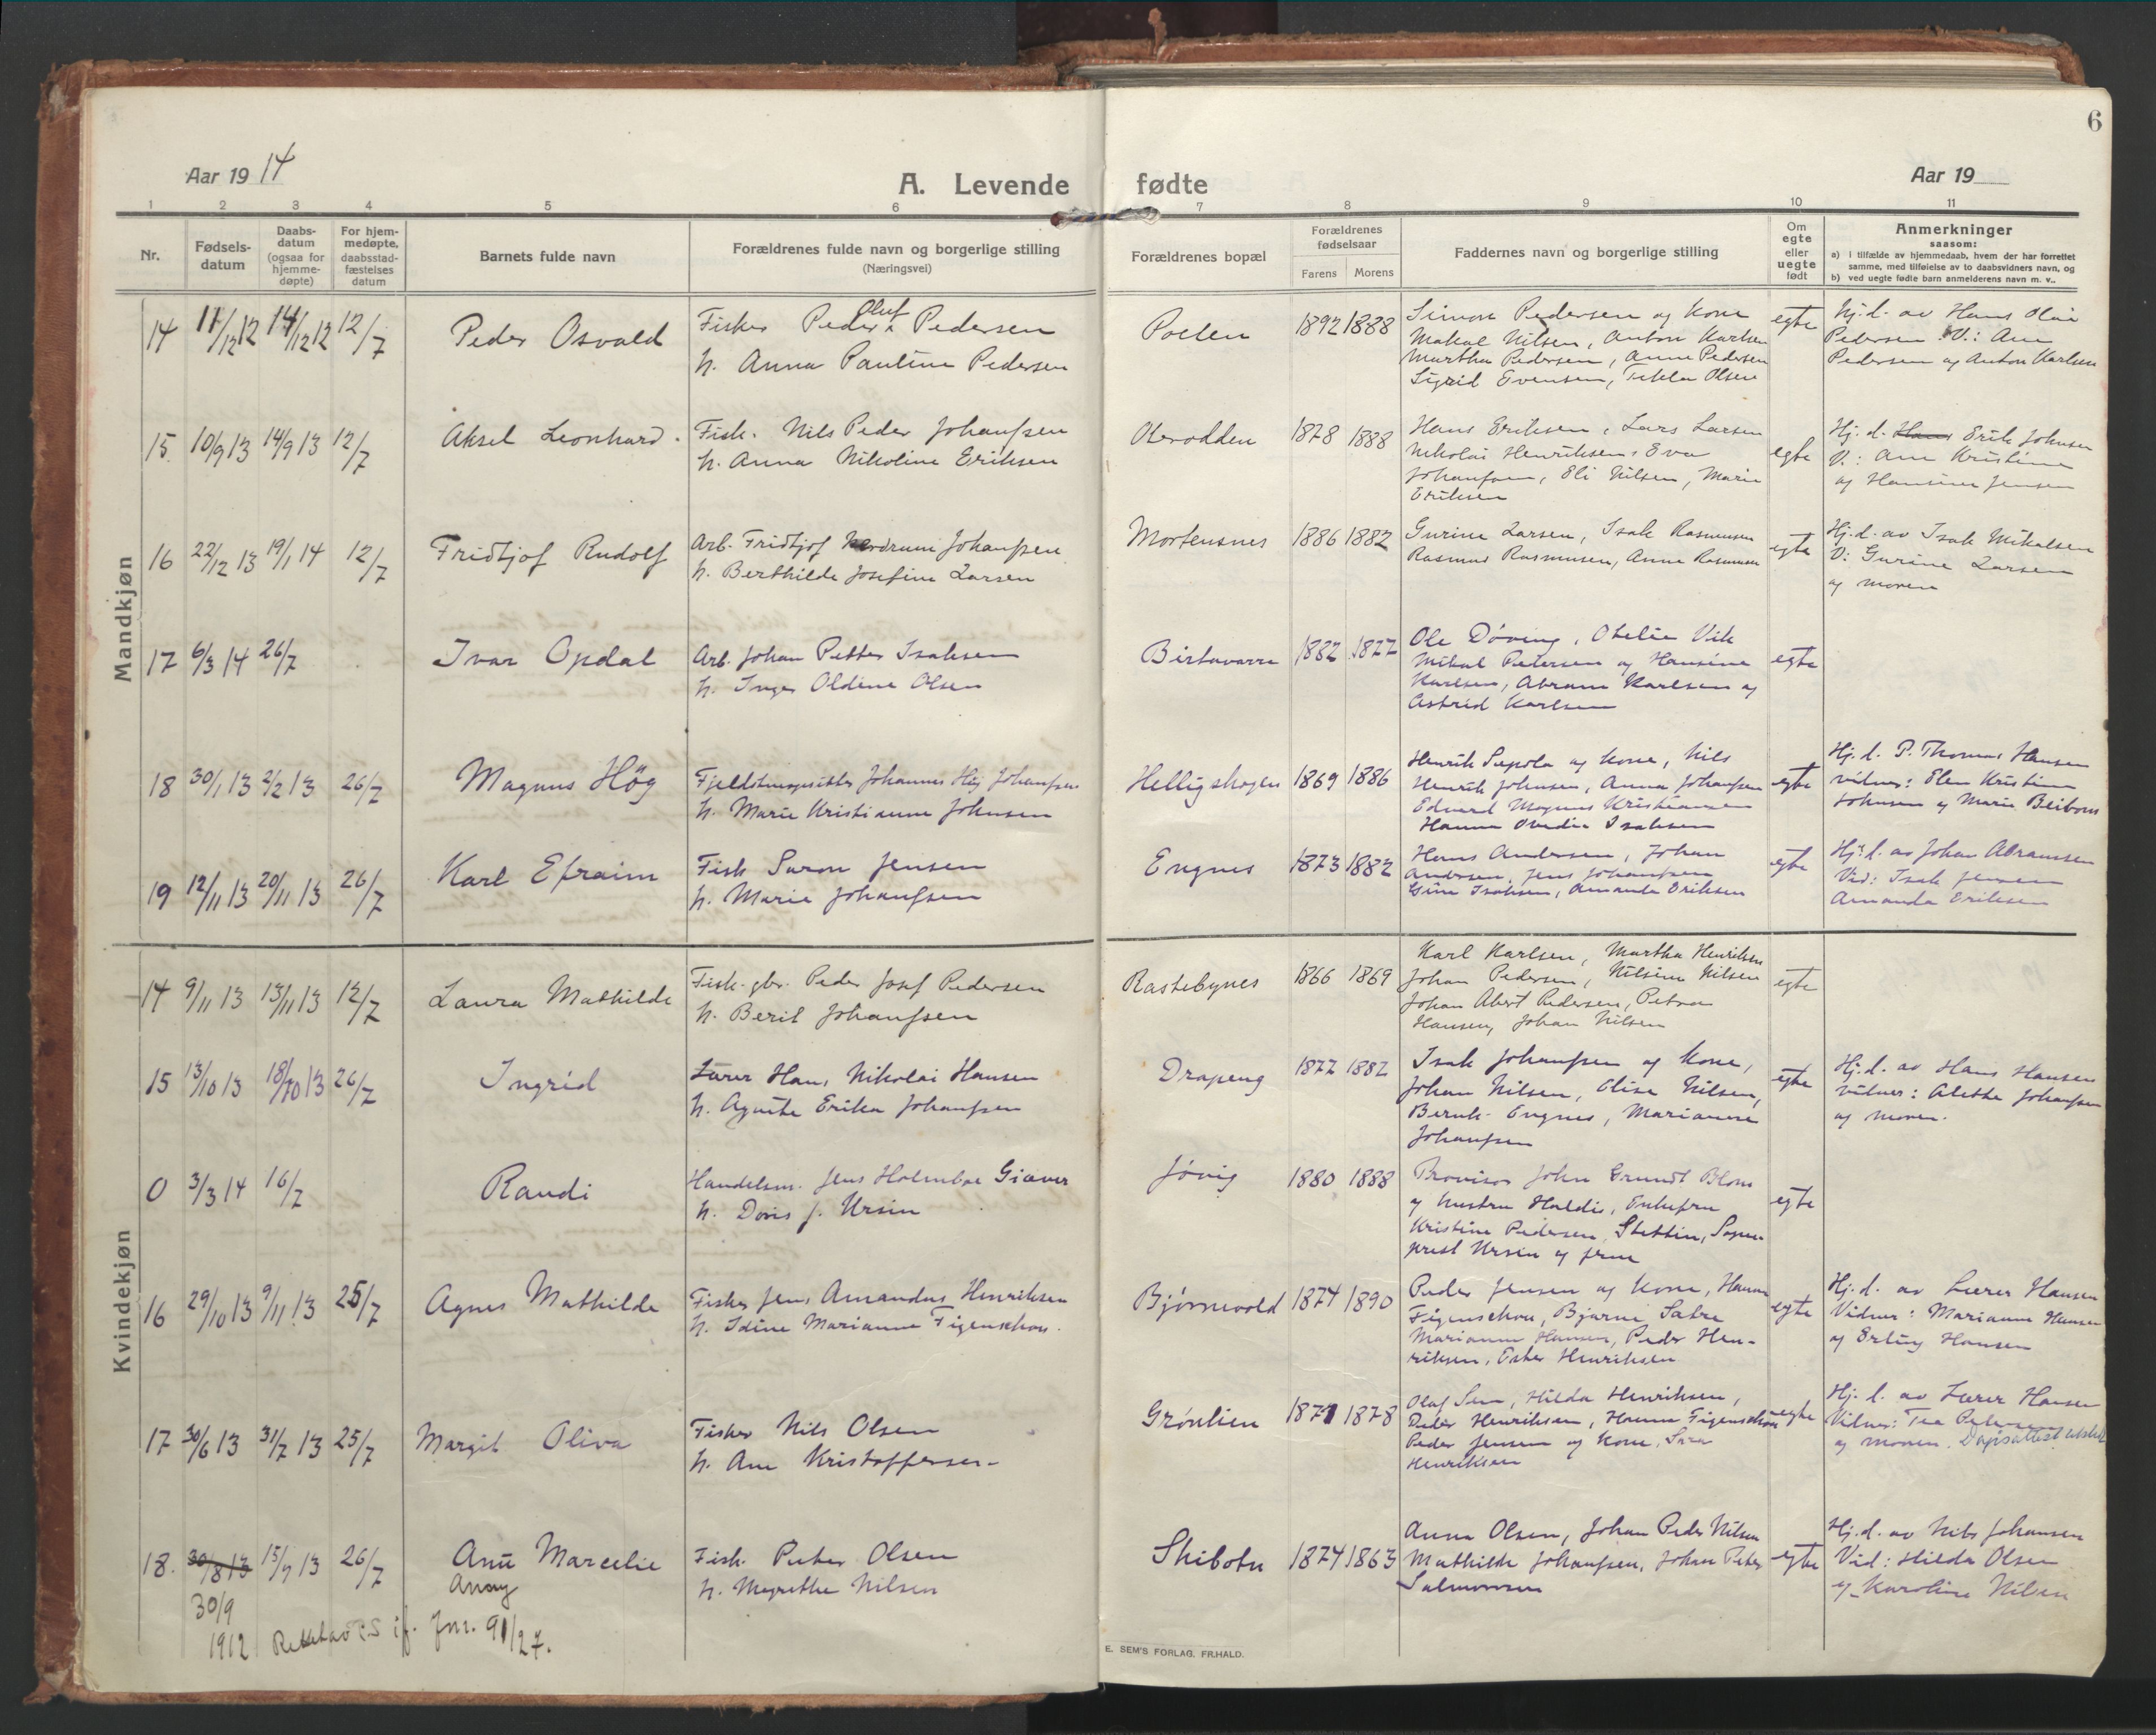 6
Aar 19 14
A. Levende fødte
Aar 19
1 2 3 4 5 6 7 8 9 10 11
Nr.
Fødsels-
datum
Daabs-
datum
(ogsaa for
hjemme-
døpte)
For hjem-
medøpte,
daabsstad-
fæstelses
datum
Barnets fulde navn
Forældrenes fulde navn og borgerlige stilling
(Næringsvei)
Forældrenes bopæl
Forældrenes
fødselsaar
Farens Morens
Faddernes navn og borgerlige stilling
Om
egte
eller
uegte
født
Anmerkninger
saasom:
a) i tilfælde av hjemmedaab, hvem der har forrettet
samme, med tilføielse av to daabsvidners navn, og
b) ved uegte fødte barn anmelderens navn m. v..
Mandkjøn
14 11/12 12 14/12 12 12/7 Peder Osvald
Fisker Peder Oluf Pedersen
h. Anna Pauline Pedersen
1892 1888
Simon Pedersen og kone
Nilsen, Anton Karlsen
Martha Pedersen, Anne Pedersen
Sigrid Evensen, Tekla Olsen
egte
Hj. d. av Hans Olai
Pedersen V.: Ane
Pedersen og Anton Karlsen
15 10/9 13 14/9 13 12/7 Aksel Leonhard
Fisk. Nils Peder Johansen
h. Anna Nikoline Eriksen
1878 1888
Hans Eriksen, Lars Larsen
Nikolai Henriksen, Eva
Johansen, Eli Nilsen, Marie
Eriksen
egte
Hj. d. Hans Erik Johnsen
V.: Ane Kristine
og Hansine Jensen
16 22/12 13 19/1 14 12/7 Fridtjof Rudolf
Arb. Fridtjof Johansen
h. Berthilde Josefine Larsen
Mortensnes 1886 1882
Gurine Larsen, Isak Rasmussen
Rasmus Rasmussen, Anna Rasmussen
egte
Hj. d. av Isak Mikalsen
V: Gurine Larsen
og moren
17 6/3 14 26/7 Ivar Opdal
Arb. Johan Petter Isaksen
h. Inger Oldine Olsen
Birtavarre 1882 1877
Ole Døving, Otelie Vik
Mikal Petersen og Hansine
Karlsen, Abram Karlsen og
Astrid Karlsen
egte
18 30/1 13 2/2 13 26/7 Magnus Høg
Johannes Høg Johansen
h. Marie Kristianne Johnsen
Helligskogen 1869 1886
Henrik Sepola og kone, Nils
Henrik Johnsen, Anna Johansen
Edvard Magnus Kristiansen
Hanna Ovedia Isaksen
egte
Hj. d. P. Thomas Hansen
vidner: Elen Kristine
Johnsen og Marie
19 12/11 13 20/11 13 26/7 Karl Efraim
Fisk Jensen
h. Marie Johansen
Engnes 1873 1882
Hans Andersen, Johan
Andersen, Jens Johansen
Isaksen, Amanda Eriksen
egte
Hj. d. av Johan Abramsen
Vid: Isak Jensen
Amanda Eriksen
Kvindekjøn
14 9/11 13 13/11 13 12/7 Laura Mathilde
Fisk. gbr. Peder Josef Pedersen
h. Berit Johansen
Rastebynes 1866 1869
Karl Karlsen, Martha Henriksen
Johan Pedersen, Nilsine Nilsen
Johan Albert Pedersen, Petra
Hansen, Johan Nilsen
egte
15 13/10 13 18/10 13 26/7 Ingrid
Lærer Hans Nikolai Hansen
h. Agnethe Erika Johansen
Drapeng 1877 1882
Isak Johansen og kone,
Johan Nilsen, Olise Nilsen,
Bernh. Engnes, Marianne
Johansen
egte
Hj. d. av Hans Hansen
vidner: Alette Johansen
og moren.
0 3/3 14 16/7 Randi
Handelsm. Jens Holmboe Giæver
h. Doris f. Ursin
Jøvig 1880 1888
Provisor John Grundt Blom
og hustru Haldis, Enkefru
Kristine Pedersen, Stettin, Sogne-
prest Ursin og frue
egte
16 29/10 13 9/11 13 25/7 Agnes Mathilde
Fisker Jens Amandus Henriksen
h. Idine Marianne Figenschou.
Bjørnevold 1874 1890
Peder Jensen og kone, Hanna
Figenschou, Bjarne Sætre
Marianne Hansen, Peder Hen-
riksen, Ester Henriksen
egte
Hj. d. av Lærer Hansen
Vidner: Marianne Hansen
og Erling Hansen
17 30/6 13 31/7 13 25/7 Margit Oliva
Fisker Nils Olsen
h. Ane Kristoffersen
Grønlien 1871 1878
Olaf Sen, Hilda Henriksen,
Peder Henriksen, Hanna Figenschou
Peder Jensen og kone, Sara
Henriksen
egte
Hj. d. av Lærer Hansen
Vidner: Tea Petersen
og moren. Dåpsattest utstedt
18. 30/8 13 15/9 13 26/7 Ane Marcelie
Anny
30/9
1912 Rettet av C.S if. jnr. 91/27.
Fisk. Peder Olsen
h. Magrethe Nilsen
Skibotn 1874 1863
Anna Olsen, Johan Peder Nilsen
Mathilde Johansen, Johan Peter
Salmonsen
egte
Hj. d. av Nils Johansen
Vid: Hilda Olsen
og Karoline Nilsen
E. SEM'S FORLAG. FR.HALD.